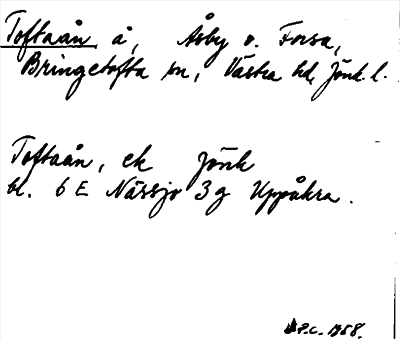 Toftaån å, Åsby o. Forsa,
Bringetofta sn, Västra hd, Jönk. l.
Toftaån, ek Jönk
bl. 6 E Nässjö 3 g Uppåkra.
P.C. 1958.